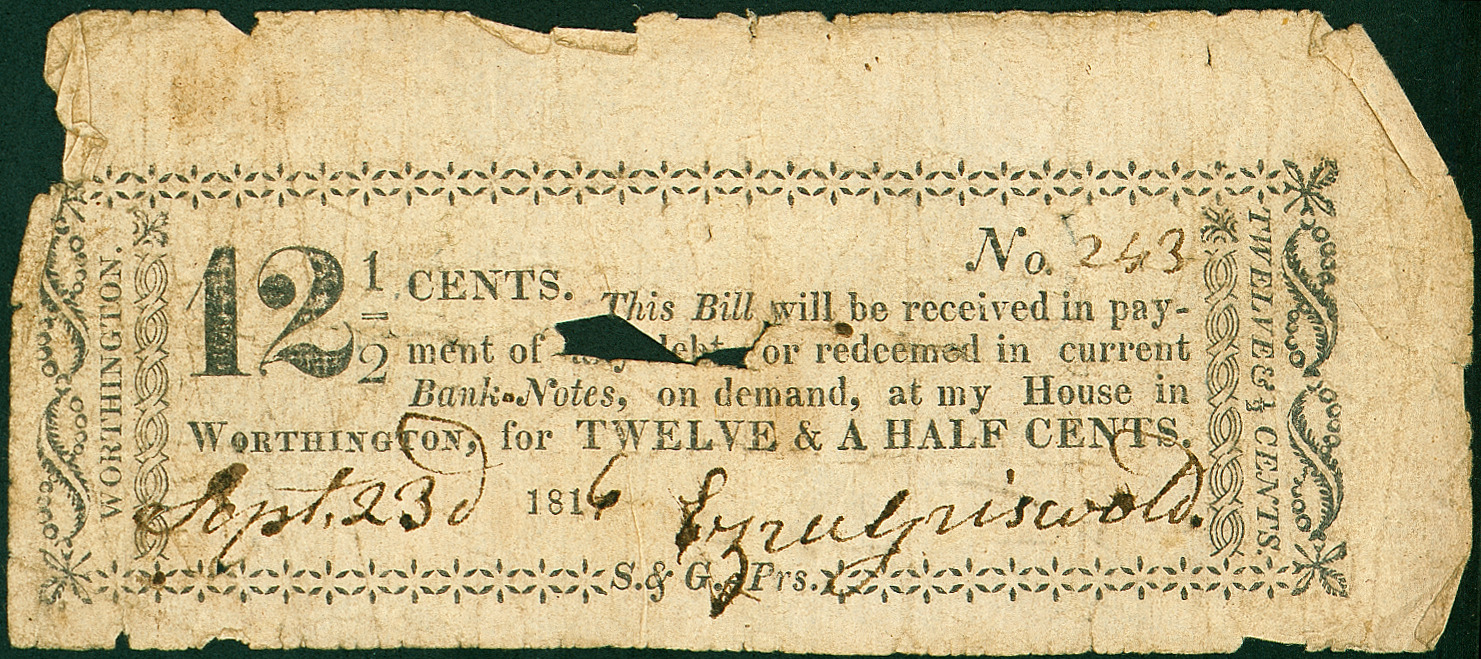 WORTHINGTON.
No. 243
12 1/2 CENTS. This Bill will be received in pay-
ment of any debt or redeemed in current
Bank-Notes, on demand, at my House in
WORTHINGTON, for TWELVE & A HALF CENTS.
Sept. 23d 1816 Ezra Griswold.
S. & G. Prs.
TWELVE & ½ CENTS.